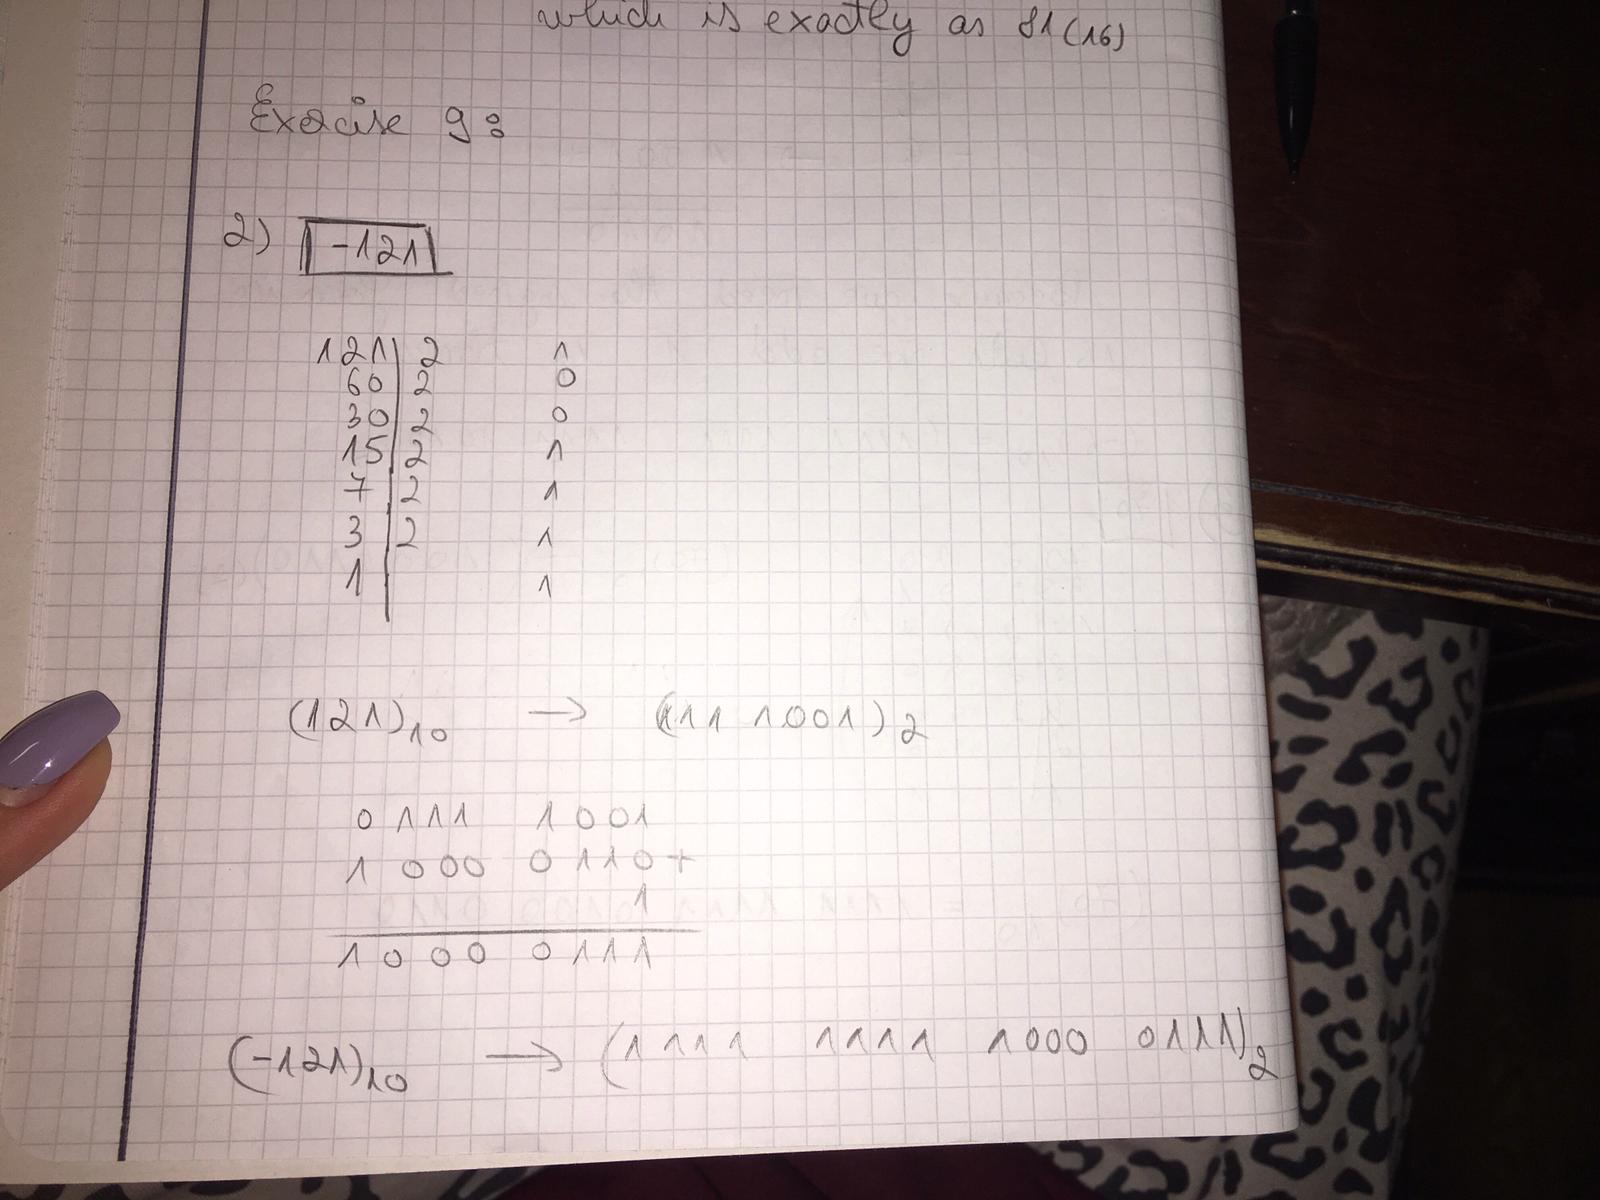 which is exactly as 81(16)
Exercise 9:
2) -121
121 2 1
60 2 0
30 2 0
15 2 1
7 2 1
3 2 1
1 1
(121)10 → (111 1001)2
0111 1001
1000 0110+
1
1000 0111
(-121)10 → (1111 1111 1000 0111)2